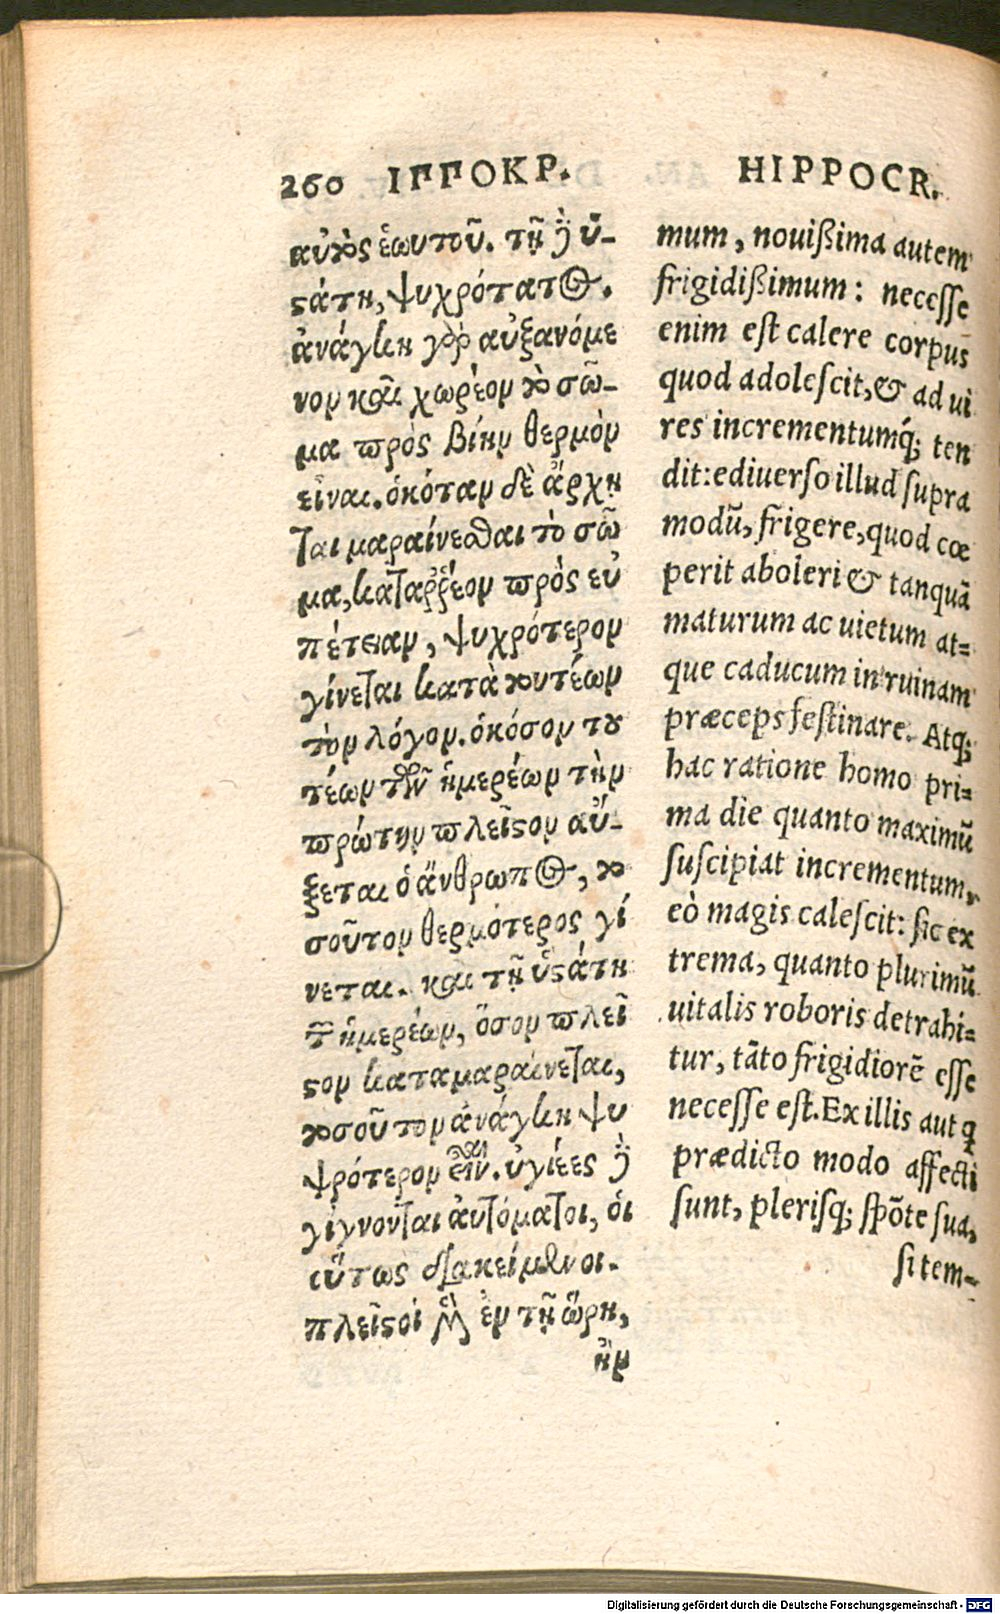 260 ΙΠΠΟΚΡ.
αὐτὸς ἑωυτοῦ. τῇ δ̀ ὑ-
στάτῃ, ψυχρότατος.
ἀνάγκη γὰρ αὐξανόμε
νον καὶ χωρέον τὸ σῶ-
μα πρὸς βίην θερμὸν
εἶναι. ὁκόταν δὲ ἄρχη
ται μαραίνεσθαι τὸ σῶ
μα, καταῤῥέον πρὸς εὐ
πέτειαν, ψυχρότερον
γίνεται κατὰ τουτέων
τὸν λόγον. ὁκόσον του
τέων τῶν ἡμερέων τὴν
πρώτην πλεῖστον αὔ-
ξεται ὁ ἄνθρωπος, το
σοῦτον θερμότερος γί
νεται. καὶ τῇ ὑστάτη
τῶν ἡμερέων, ὅσον πλεῖ
στον καταμαραίνεται,
τοσοῦτον ἀνάγκη ψυ
ψρότερον εἶναι. ὑγιέες δ̀
γίγνονται αὐτόματοι, ὁι
οὕτως διακείμενοι.
πλεῖστοι ἐν τῇ ὥρη,
ἣν
HIPPOCR.
mum, nouißima autem
frigidißimum: necesse
enim est calere corpus
quod adolescit, & ad ui
res incrementumq́; ten
dit: ediuerso illud supra
modū, frigere, quod cœ
perit aboleri & tanquā
maturum ac uietum at=
que caducum in ruinam
præceps festinare. Atq;
hac ratione homo pri=
ma die quanto maximū
suscipiat incrementum,
eò magis calescit: sic ex
trema, quanto plurimū
uitalis roboris detrahi=
tur, tāto frigidiorē esse
necesse est. Ex illis aut ꝗ
prædicto modo affecti
sunt, plerisq; spōte sua,
si tem-
Digitalisierung gefördert durch die Deutsche Forschungsgemeinschaft - DFG